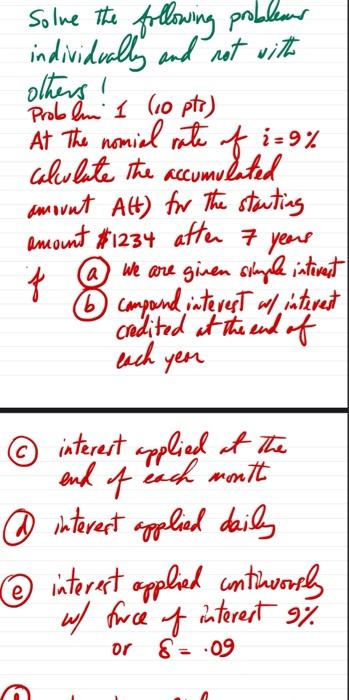 Solve the following problems
individually and not with
others !
Problem 1 (10 pts)
At the nomial rate of i = 9%
calculate the accumulated
amount A(t) for the starting
amount $1234 after 7 years
if (a) we are given simple interest
(b) compound interest w/ interest
credited at the end of
each year
(c) interest applied at the
end of each month
(d) interest applied daily
(e) interest applied continuously
w/ force of interest 9%
or δ = .09